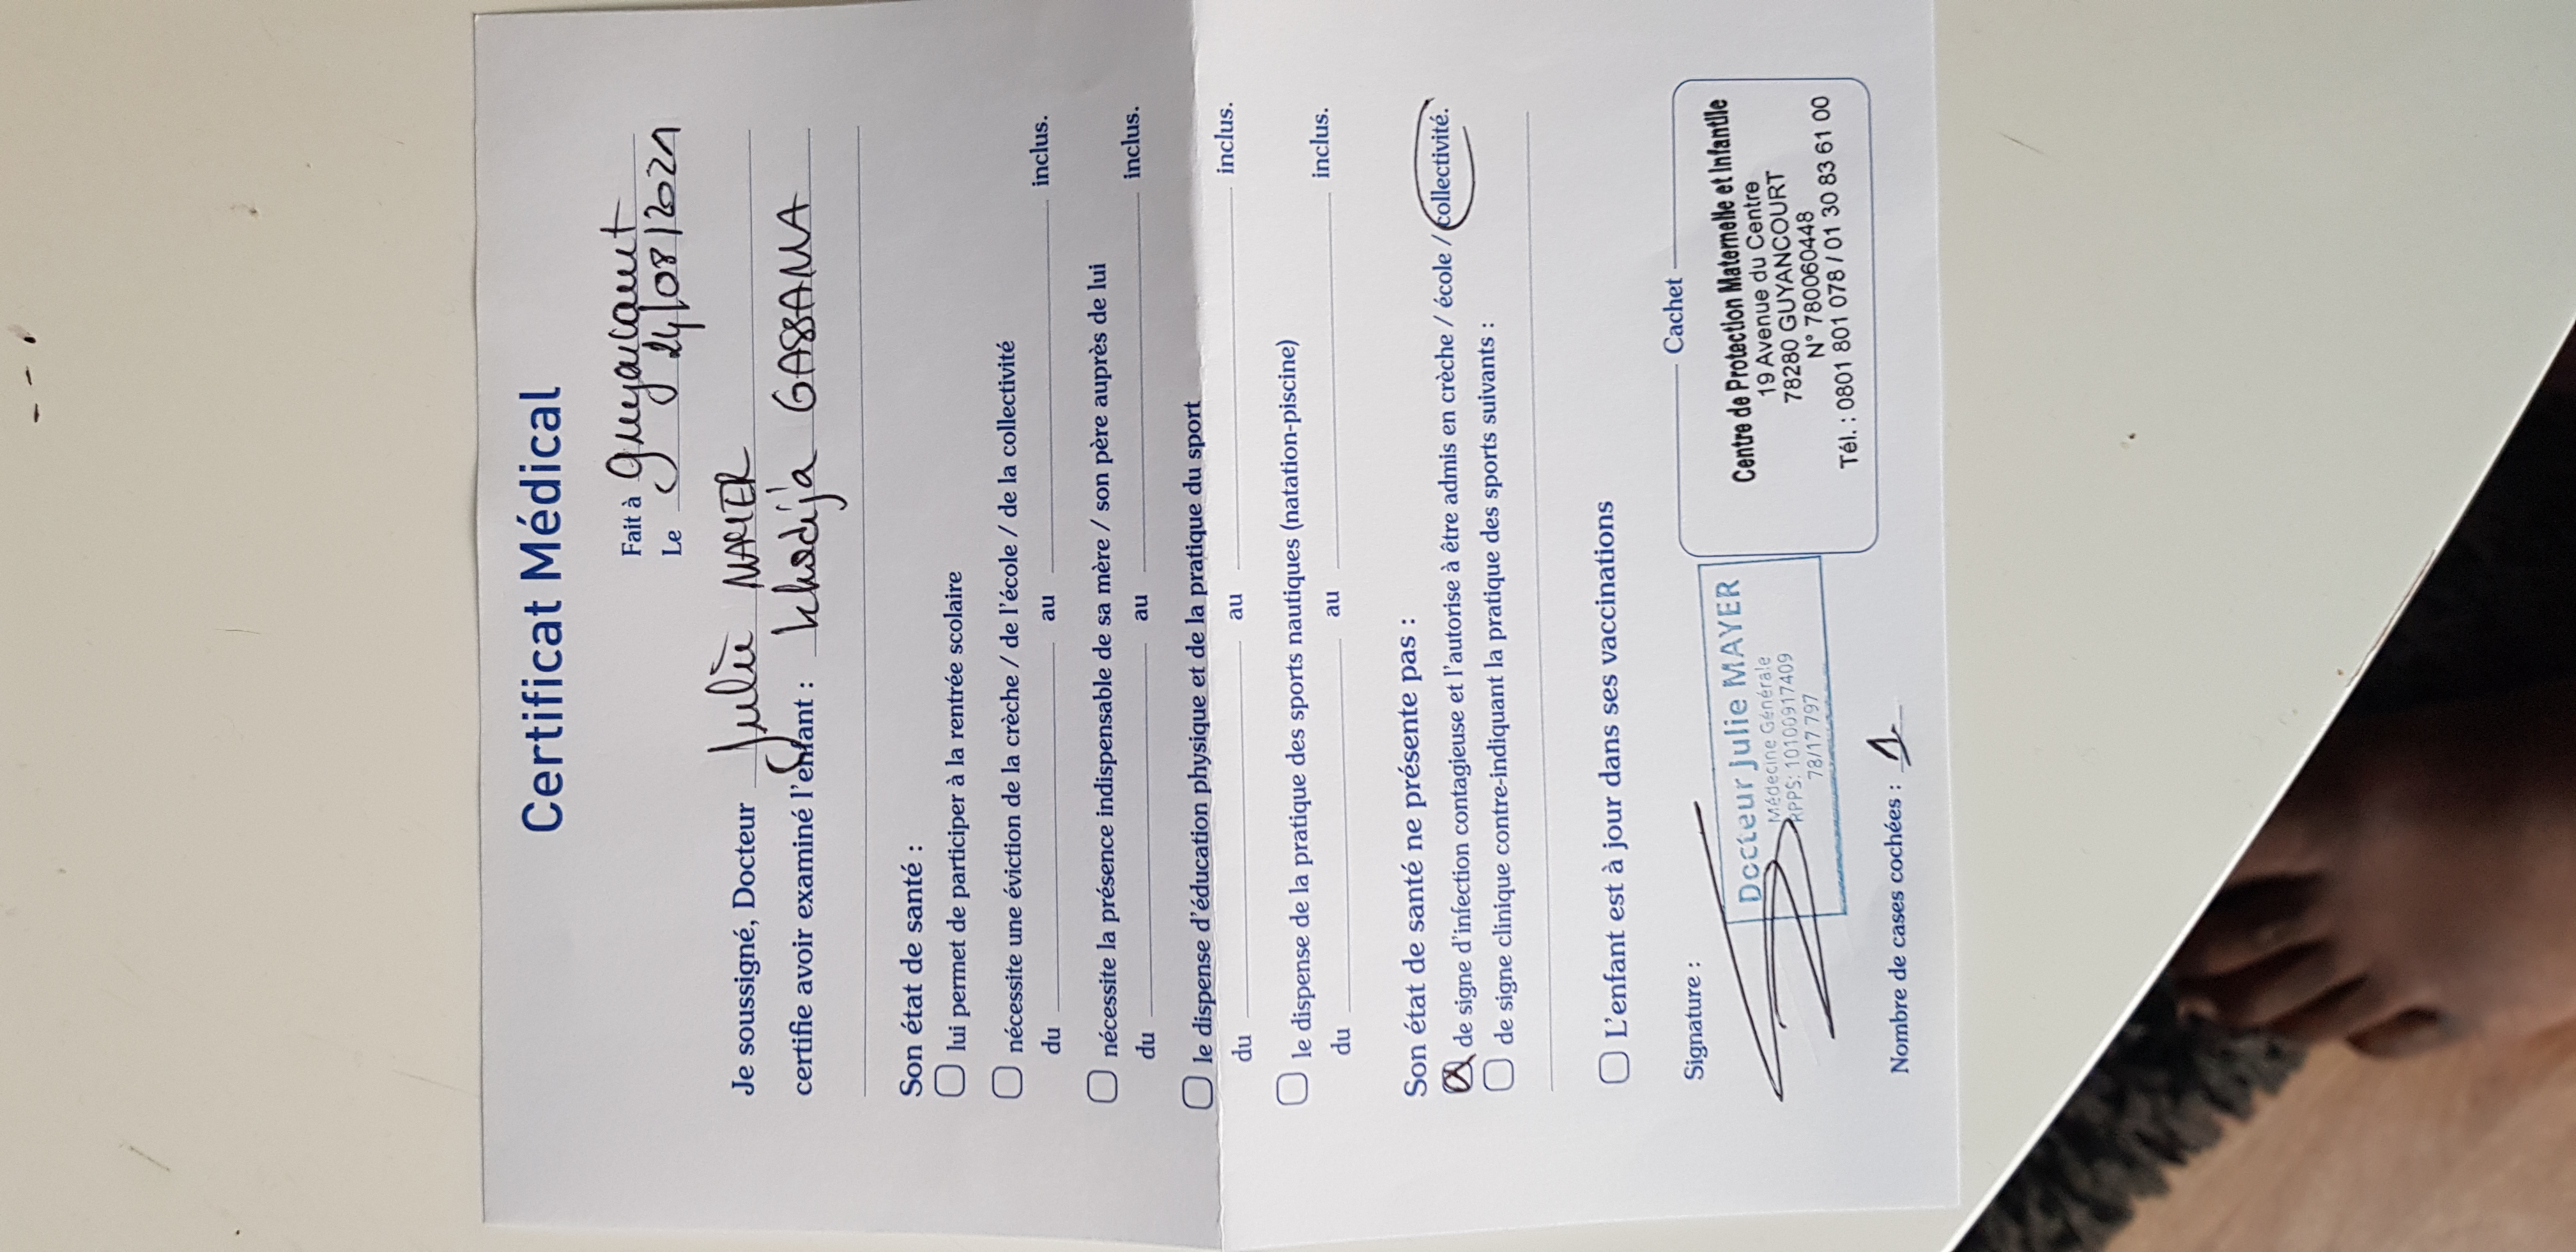 Certificat Médical
Fait à Guyancourt
Le 24/08/2021
Je soussigné, Docteur Julie MAYER
certifie avoir examiné l'enfant : Khadija GASSAMA
Son état de santé :
lui permet de participer à la rentrée scolaire
nécessite une éviction de la crèche / de l'école / de la collectivité
du au inclus.
nécessite la présence indispensable de sa mère / son père auprès de lui
du au inclus.
le dispense d'éducation physique et de la pratique du sport
du au inclus.
le dispense de la pratique des sports nautiques (natation-piscine)
du au inclus.
Son état de santé ne présente pas :
de signe d'infection contagieuse et l'autorise à être admis en crèche / école / collectivité.
de signe clinique contre-indiquant la pratique des sports suivants :
L'enfant est à jour dans ses vaccinations
Signature :
Docteur Julie MAYER
Médecine Générale
RPPS: 10100917409
78/17 797
Cachet
Centre de Protection Maternelle et Infantile
19 Avenue du Centre
78280 GUYANCOURT
N° 780060448
Tél. : 0801 801 078 / 01 30 83 61 00
Nombre de cases cochées : 1